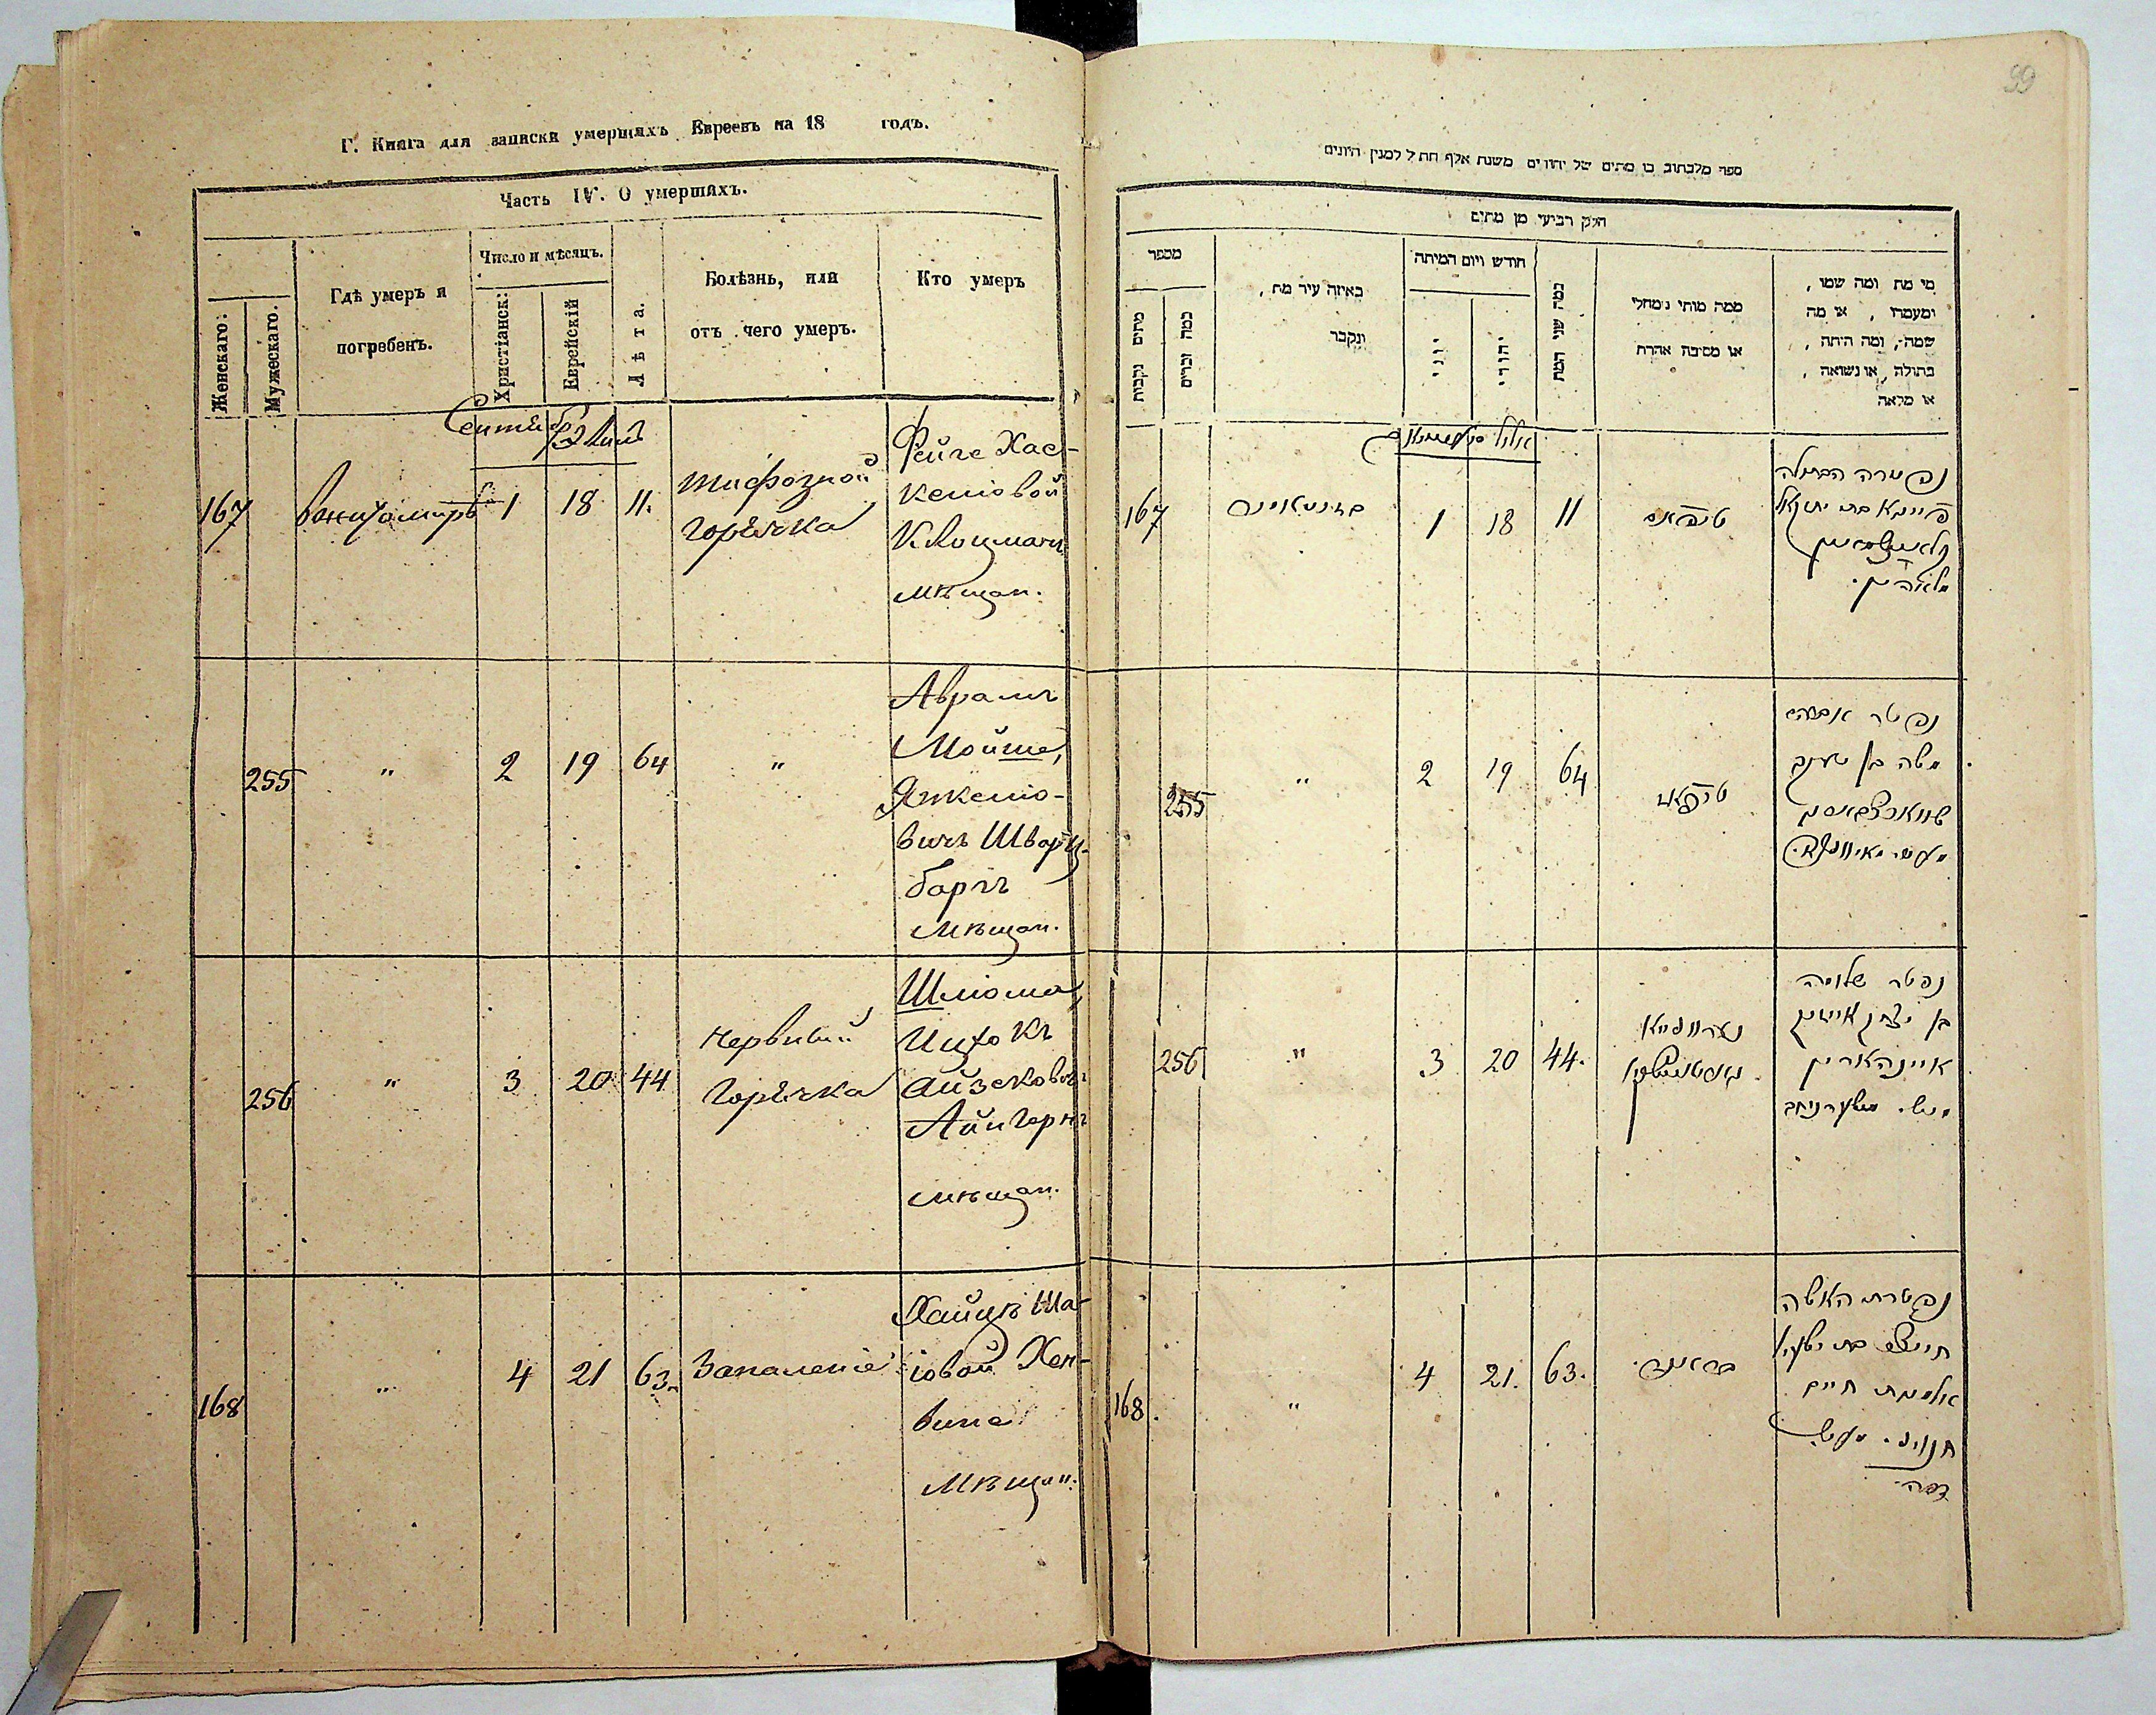 Г. Книга для записки умершихъ Евреевъ на 18 годъ.
Часть IV. О умершихъ.
Женскаго:
Мужескаго.
Гдѣ умеръ и
погребенъ.
Число и мѣсяцъ.
Христіанск:
Еврейскій
Лѣта.
Болѣзнь, или
отъ чего умеръ.
Кто умеръ
Сентябр Элилъ
167
1
18
11.
тифозной
горячка
Фейге Хас-
келіовой
Клоцманъ
мѣщан.
255
"
2
19
64
"
Аврамъ
Мойше,
Янкеліо-
вичъ Шварц-
баргъ
мѣщан.
256
"
3
20
44
Нервный
горячка
Шліома,
Ицхокъ
Айзековичъ
Айнгорнъ
мѣщан.
168
"
4
21
63.
Запаленіе
Хайцѣ Ша-
іовой Хен-
вина
мѣщан:
99
ספר מלכתוב בו מתים של יהודים משנת אלף תת ל למנין היונים
חלק רביעי מן מתים
מספר
מתים נקבות
כמה זכרים
באיזה עיר מת,
ונקבר
חודש ויום המיתה
יוני
יהודי
כמה שני המת
ממה מותי ומחלי
או מסיבה אחרת
מי מת ומה שמו,
ומעמדו, או מה
שמה, ומה היתה,
בתולה, או נשואה,
או מלאה
אלול
167
1
18
11
נפטרה הבתולה
פייגא בת יחזקאל
255
"
2
19
64
נפטר אברהם
משה בן יענקב
256
"
3
20
44.
נפטר שלומה
בן יצחק אייזיק
אייןהארין
168.
"
4
21.
63.
נפטרת האשה
חייצי בת ישעיה
אלמנת חיים